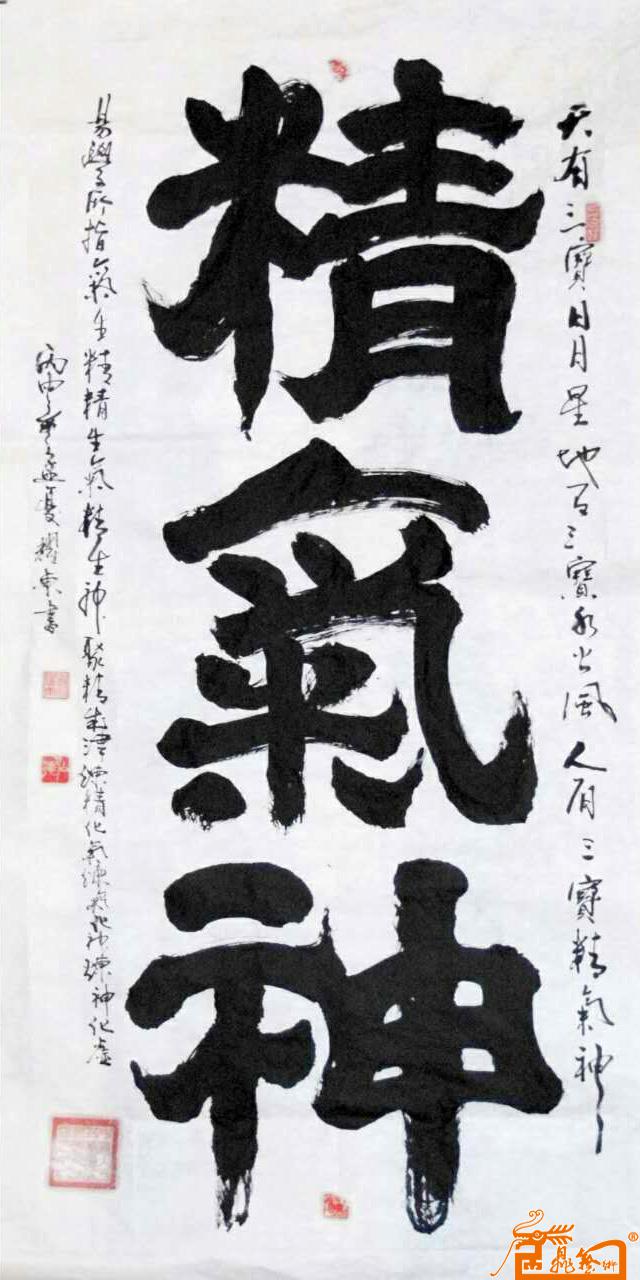 天有三寳日月星地有三寳水火風人有三寳精氣神
精氣神
易學大师指氣生精精生氣精生神聚精成津練精化氣練氣化神練神化虛
丙申年孟夏耀東書